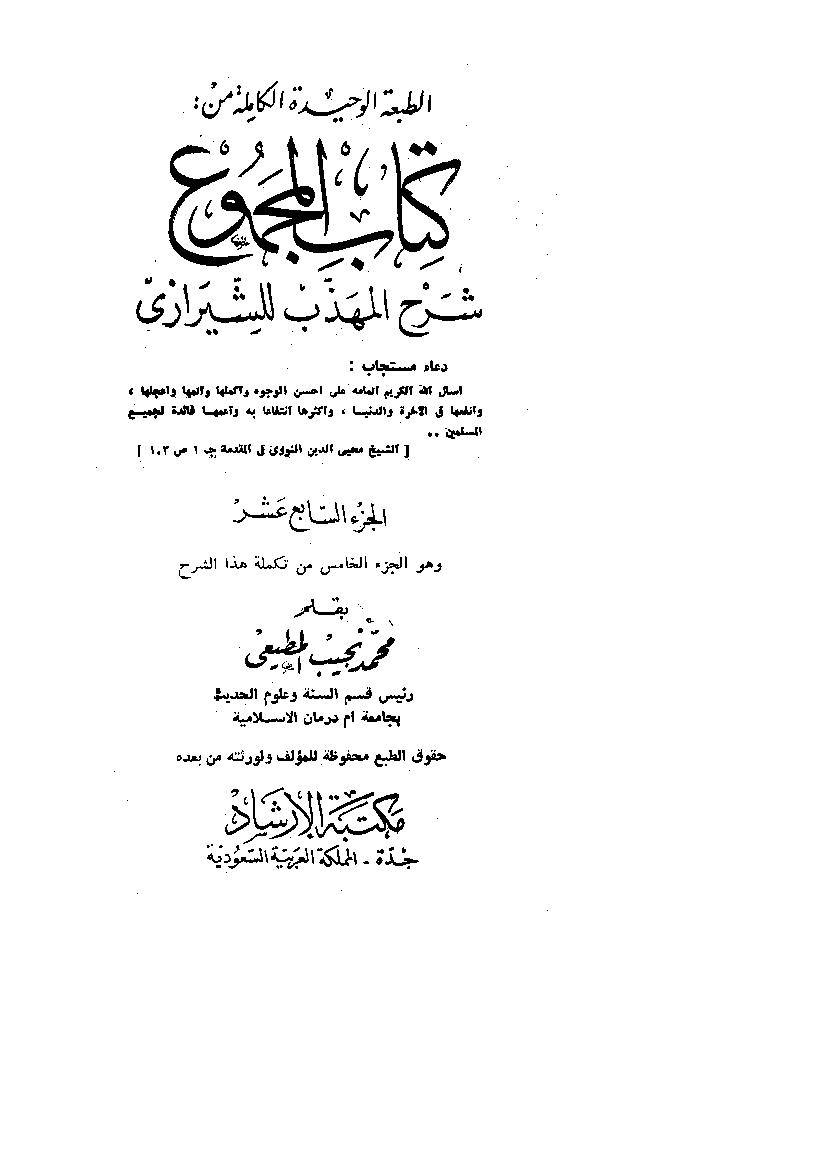 الطبعة الوحيدة الكاملة من :
كتاب المجموع
شرح المهذب للشيرازى
دعاء مستجاب :
اسأل الله الكريم اتمامه على احسن الوجوه واكملها واتمها واعجلها ،
وانفعها فى الآخرة والدنيا ، واكثرها انتفاعا به واعمها فائدة لجميع
المسلمين ..
[ الشيخ محيى الدين النووى فى المقدمة جـ ١ ص ١٠٣ ]
الجزء السابع عشر
وهو الجزء الخامس من تكملة هذا الشرح
بقلم
محمد نجيب المطيعى
رئيس قسم السنة وعلوم الحديث
بجامعة ام درمان الاسلامية
حقوق الطبع محفوظة للمؤلف ولورثته من بعده
مكتبة الإرشاد
جدة - المملكة العربية السعودية